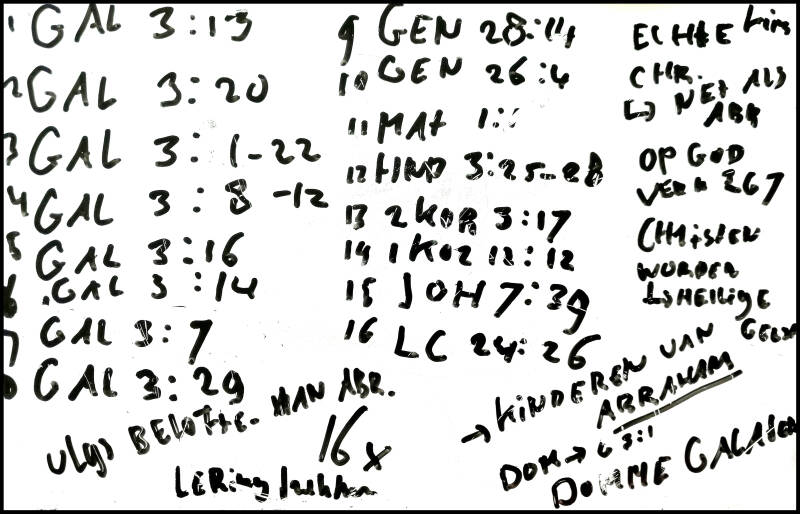 1 GAL 3:13
2 GAL 3:20
3 GAL 3:1-22
4 GAL 3:8-12
5 GAL 3:16
6 GAL 3:14
7 GAL 3:7
8 GAL 3:29
9 GEN 28:14
10 GEN 26:4
11 MAT 1:1
12 HND 3:25-28
13 2 KOR 3:17
14 1 KOR 12:12
15 JOH 7:39
16 LC 24:26
ECHTE
CHR.
↳ NET ALS
ABR
OP GOD
VERH
CHRISTEN
WORDEN
HEILIGE
GEEST
→ KINDEREN VAN
ABRAHAM
DOM → G 3:1
DOMME GALATEN
BELOFTE. AAN ABR.
16x